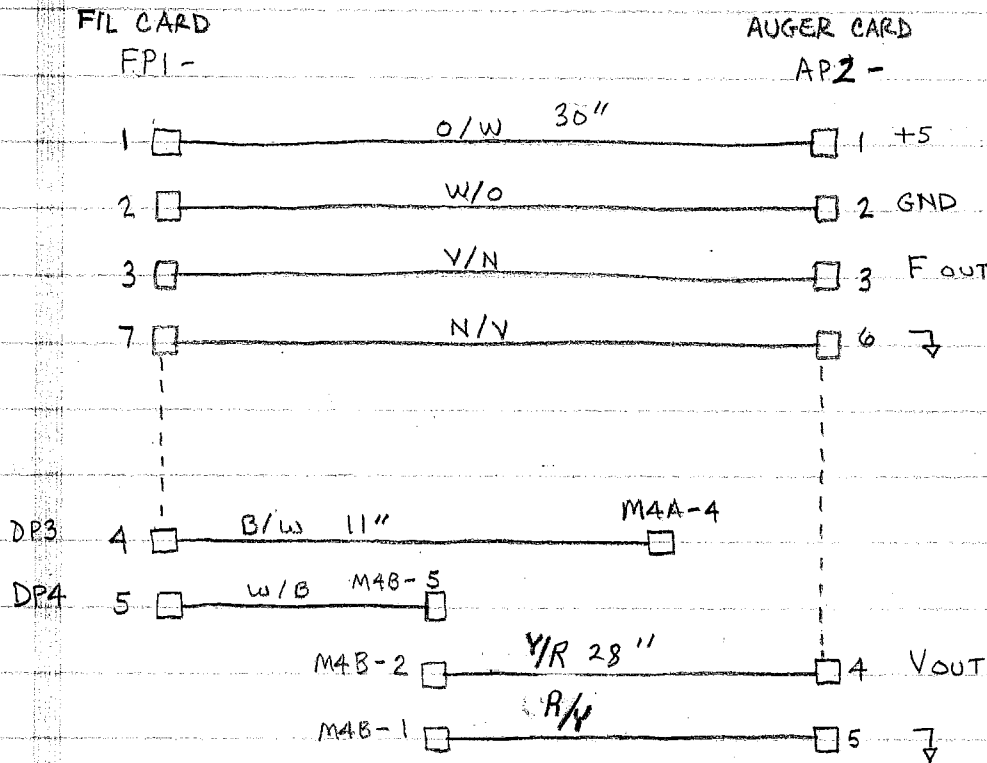 FIL CARD AUGER CARD
FP1- AP2-
1 O/W 30" 1 +5
2 W/O 2 GND
3 V/N 3 F OUT
7 N/V 6
DP3 4 B/W 11" M4A-4
DP4 5 W/B M4B-5
M4B-2 Y/R 28" 4 VOUT
M4B-1 R/Y 5